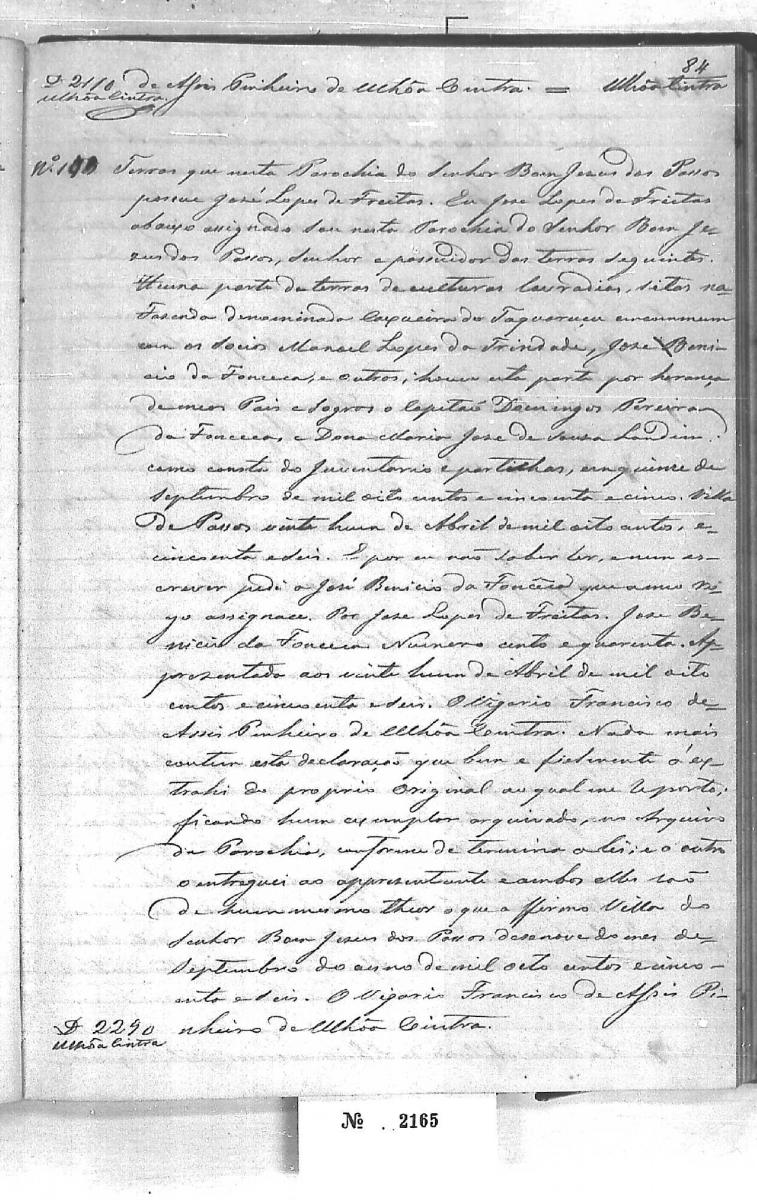 84
D 2110 de Assis Pinheiro de Ulhôa Cintra. = Ulhôa Cintra
Ulhôa Cintra
Nº 140 Terras que nesta Parochia do Senhor Bom Jezus dos Passos
possue José Lopes de Freitas. Eu Jose Lopes de Freitas
abaixo assignado sou nesta Parochia do Senhor Bom Je-
zus dos Passos, Senhor e possuidor das terras seguintes.
Huma parte de terras de culturas lavradias, sitas na
Fazenda denominada Caxoeira do Taquaruçu em commum
com os Socios Manoel Lopes da Trindade, Jose Beni-
cio da Fonceca, e outros, houve esta parte por herança
de meos Pais e Sogros o Capitaõ Domingos Pereira
da Fonceca e Dona Maria Jose de Souza Landim.
como consta do Inventario e partilhas, em quinze de
Septumbro de mil oito centos e cincoenta e cinco. Villa
de Passos vinte hum de Abril de mil oito centos, e
cincoenta e seis. E por eu naõ saber ler, e nem es-
crever pedi a José Benicio da Fonceca que a meo ro-
go assignace. Por Jose Lopes de Freitas. Jose Be-
nicio da Fonceca Numero cento e quarenta. Ap-
presentada aos vinte hum de Abril de mil oito
centos e cincoenta e seis. O Vigario Francisco de
Assis Pinheiro de Ulhôa Cintra. Nada mais
contem esta declaração que bem e fielmente a ex-
trahi do proprio Original ao qual me reporto;
ficando hum exemplar arquivado, no Arquivo
da Parochia, conforme determina a lei; e o outro
o entreguei ao appresentante e ambos elles saõ
de hum mesmo theor o que affirmo Villa do
Senhor Bom Jezus dos Passos desenove do mes de
Septembro do anno de mil oito centos e cinco-
enta e seis. O Vigario Francisco de Assis Pi-
D 2290 nheiro de Ulhôa Cintra.
Ulhôa Cintra
Nº 2165